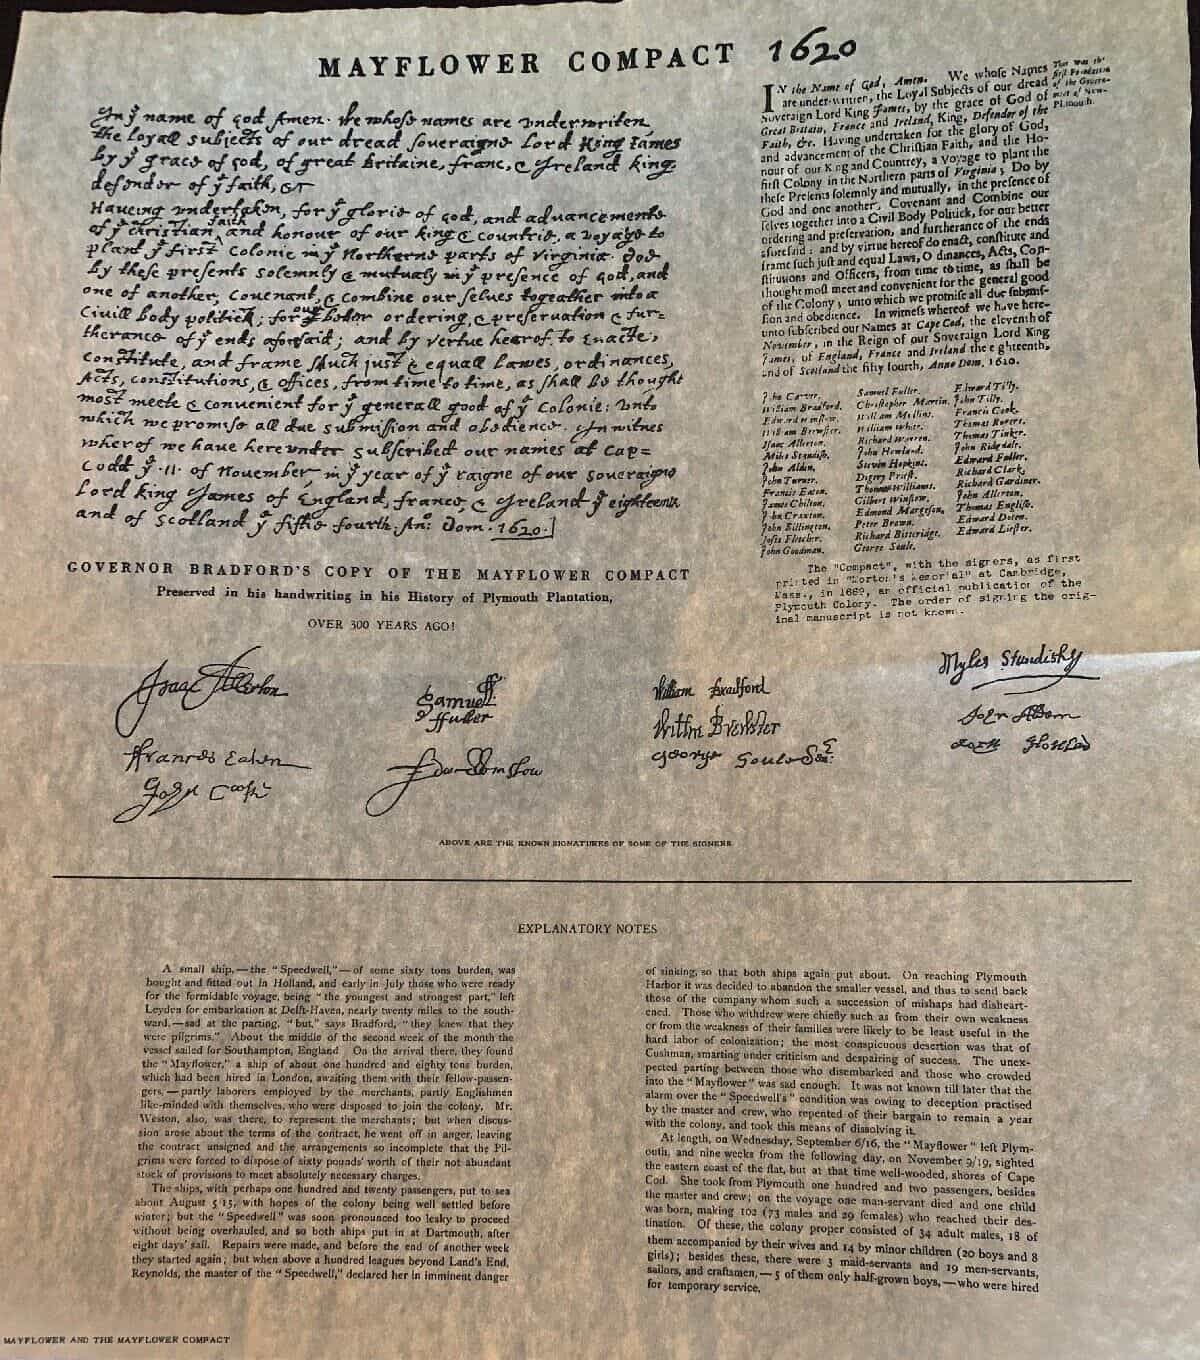 MAYFLOWER COMPACT 1620
In ẙ name of god Amen. We whose names are underwriten,
the loyall subjects of our dread soveraigne Lord King James
by ẙ grace of god, of great Britaine, franc, & Ireland king,
defender of ẙ faith, &c
Haveing undertaken, for ẙ glorie of god, and advancemente
of ẙ christian faith and honour of our king & countrie, a voyage to
plant ẙ first colonie in ẙ Northerne parts of Virginia. Doe
by these presents solemnly & mutualy in ẙ presence of god, and
one of another, covenant, & combine our selves togeather into a
Civill body politick; for our better ordering, & preservation & fur=
therance of ẙ ends aforesaid; and by vertue hearof, to Enacte,
constitute, and frame shuch just & equall Lawes, ordinances,
Acts, constitutions, & offices, from time to time, as shall be thought
most meete & convenient for ẙ generall good of ẙ Colonie: unto
which we promise all due submission and obedience. In witnes
wherof we have here under subscribed our names at Cap=
Codd ẙ .11. of November, in ẙ year of ẙ raigne of our soveraigne
Lord king James of England, france, & Ireland ẙ eighteenth
and of Scotland ẙ fiftie fourth. An: Dom. 1620.
GOVERNOR BRADFORD'S COPY OF THE MAYFLOWER COMPACT
Preserved in his handwriting in his History of Plymouth Plantation,
OVER 300 YEARS AGO!
IN the Name of God, Amen. We whose Names
are under-written, the Loyal Subjects of our dread
Soveraign Lord King James, by the grace of God of
Great Britain, France and Ireland, King, Defender of the
Faith, &c. Having undertaken for the glory of God,
and advancement of the Christian Faith, and the Ho-
nour of our King and Countrey, a Voyage to plant the
first Colony in the Northern parts of Virginia; Do by
these Presents solemnly and mutually, in the presence of
God and one another, Covenant and Combine our
selves together into a Civil Body Politick, for our better
ordering and preservation, and furtherance of the ends
aforesaid: and by virtue hereof do enact, constitute and
frame such just and equal Laws, O dinances, Acts, Con-
stitutions and Officers, from time to time, as shall be
thought most meet and convenient for the general good
of the Colony; unto which we promise all due submis-
sion and obedience. In witness whereof we have here-
unto subscribed our Names at Cape Cod, the eleventh of
November, in the Reign of our Soveraign Lord King
James, of England, France and Ireland the eighteenth,
and of Scotland the fifty fourth, Anno Dom. 1620.
This was the
first Foundation
of the Govern-
ment of New-
Plimouth.
John Carver.
William Bradford.
Edward Winslow.
William Brewster.
Isaac Allerton.
Miles Standish.
John Alden.
John Turner.
Francis Eaton.
James Chilton.
John Craxton.
John Billington.
Joses Fletcher.
John Goodman.
Samuel Fuller.
Christopher Martin.
William Mullins.
William White.
Richard Warren.
John Howland.
Steven Hopkins.
Digery Priest.
Thomas Williams.
Gilbert Winslow.
Edmond Margeson.
Peter Brown.
Richard Bitteridge.
George Soule.
Edward Tilly.
John Tilly.
Francis Cook.
Thomas Rogers.
Thomas Tinker.
John Ridgdale.
Edward Fuller.
Richard Clark.
Richard Gardiner.
John Allerton.
Thomas English.
Edward Doten.
Edward Liester.
The "Compact", with the signers, as first
printed in "Morton's Memorial" at Cambridge,
Mass., in 1669, an official publication of the
Plymouth Colony. The order of signing the orig-
inal manuscript is not known.
Isaac Allerton
Samuell
ffuller
William Bradford
Myles Standish
Willm Brewster
John Alden
Frances Eaton
Edw Winslow
George Soule Senr
John Cooke
ABOVE ARE THE KNOWN SIGNATURES OF SOME OF THE SIGNERS
EXPLANATORY NOTES
A small ship,—the "Speedwell,"—of some sixty tons burden, was
bought and fitted out in Holland, and early in July those who were ready
for the formidable voyage, being "the youngest and strongest part," left
Leyden for embarkation at Delft-Haven, nearly twenty miles to the south-
ward,—sad at the parting, "but," says Bradford, "they knew that they
were pilgrims." About the middle of the second week of the month the
vessel sailed for Southampton, England On the arrival there, they found
the "Mayflower," a ship of about one hundred and eighty tons burden,
which had been hired in London, awaiting them with their fellow-passen-
gers,—partly laborers employed by the merchants, partly Englishmen
like-minded with themselves, who were disposed to join the colony. Mr.
Weston, also, was there, to represent the merchants; but when discus-
sion arose about the terms of the contract, he went off in anger, leaving
the contract unsigned and the arrangements so incomplete that the Pil-
grims were forced to dispose of sixty pounds' worth of their not abundant
stock of provisions to meet absolutely necessary charges.
The ships, with perhaps one hundred and twenty passengers, put to sea
about August 5 15, with hopes of the colony being well settled before
winter; but the "Speedwell" was soon pronounced too leaky to proceed
without being overhauled, and so both ships put in at Dartmouth, after
eight days' sail. Repairs were made, and before the end of another week
they started again; but when above a hundred leagues beyond Land's End,
Reynolds, the master of the "Speedwell," declared her in imminent danger
of sinking, so that both ships again put about. On reaching Plymouth
Harbor it was decided to abandon the smaller vessel, and thus to send back
those of the company whom such a succession of mishaps had disheart-
ened. Those who withdrew were chiefly such as from their own weakness
or from the weakness of their families were likely to be least useful in the
hard labor of colonization; the most conspicuous desertion was that of
Cushman, smarting under criticism and despairing of success. The unex-
pected parting between those who disembarked and those who crowded
into the "Mayflower" was sad enough. It was not known till later that the
alarm over the "Speedwell's" condition was owing to deception practised
by the master and crew, who repented of their bargain to remain a year
with the colony, and took this means of dissolving it.
At length, on Wednesday, September 6/16, the "Mayflower" left Plym-
outh, and nine weeks from the following day, on November 9/19, sighted
the eastern coast of the flat, but at that time well-wooded, shores of Cape
Cod. She took from Plymouth one hundred and two passengers, besides
the master and crew; on the voyage one man-servant died and one child
was born, making 102 (73 males and 29 females) who reached their des-
tination. Of these, the colony proper consisted of 34 adult males, 18 of
them accompanied by their wives and 14 by minor children (20 boys and 8
girls); besides these, there were 3 maid-servants and 19 men-servants,
sailors, and craftsmen,—5 of them only half-grown boys,—who were hired
for temporary service.
MAYFLOWER AND THE MAYFLOWER COMPACT